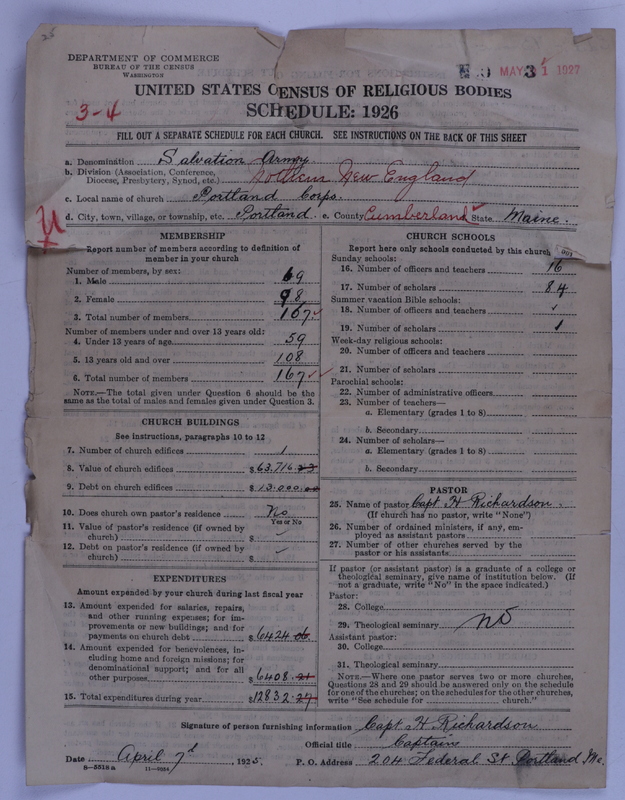 DEPARTMENT OF COMMERCE
BUREAU OF THE CENSUS
WASHINGTON
MAY 31 1927
UNITED STATES CENSUS OF RELIGIOUS BODIES
SCHEDULE: 1926
3-4
FILL OUT A SEPARATE SCHEDULE FOR EACH CHURCH. SEE INSTRUCTIONS ON THE BACK OF THIS SHEET
a. Denomination Salvation Army
b. Division (Association, Conference, Diocese, Presbytery, Synod, etc.) Northern New England
c. Local name of church Portland Corps.
d. City, town, village, or township, etc. Portland e. County Cumberland State Maine.
MEMBERSHIP
Report number of members according to definition of
member in your church
Number of members, by sex:
1. Male 69
2. Female 98
3. Total number of members 167
Number of members under and over 13 years old:
4. Under 13 years of age 59
5. 13 years old and over 108
6. Total number of members 167
NOTE.—The total given under Question 6 should be the
same as the total of males and females given under Question 3.
CHURCH BUILDINGS
See instructions, paragraphs 10 to 12
7. Number of church edifices 1
8. Value of church edifices $63,716.23
9. Debt on church edifices $13,000.00
10. Does church own pastor's residence No
Yes or No
11. Value of pastor's residence (if owned by
church) $
12. Debt on pastor's residence (if owned by
church) $
EXPENDITURES
Amount expended by your church during last fiscal year
13. Amount expended for salaries, repairs,
and other running expenses; for im-
provements or new buildings; and for
payments on church debt $6424.06
14. Amount expended for benevolences, in-
cluding home and foreign missions; for
denominational support; and for all
other purposes $6408.21
15. Total expenditures during year $12832.27
CHURCH SCHOOLS
Report here only schools conducted by this church
Sunday schools:
16. Number of officers and teachers 16
17. Number of scholars 84
Summer vacation Bible schools:
18. Number of officers and teachers
19. Number of scholars
Week-day religious schools:
20. Number of officers and teachers
21. Number of scholars
Parochial schools:
22. Number of administrative officers
23. Number of teachers—
a. Elementary (grades 1 to 8)
b. Secondary
24. Number of scholars—
a. Elementary (grades 1 to 8)
b. Secondary
PASTOR
25. Name of pastor Capt H Richardson.
(If church has no pastor, write "None")
26. Number of ordained ministers, if any, em-
ployed as assistant pastors
27. Number of other churches served by the
pastor or his assistants
If pastor (or assistant pastor) is a graduate of a college or
theological seminary, give name of institution below. (If
not a graduate, write "No" in the space indicated.)
Pastor:
28. College
29. Theological seminary No
Assistant pastor:
30. College
31. Theological seminary
NOTE.—Where one pastor serves two or more churches,
Questions 28 and 29 should be answered only on the schedule
for one of the churches; on the schedules for the other churches,
write "See schedule for church."
Signature of person furnishing information Capt. H. Richardson
Official title Captain
Date April 7th, 1925. P. O. Address 204 Federal St Portland Me.
8—5518a 11—9954